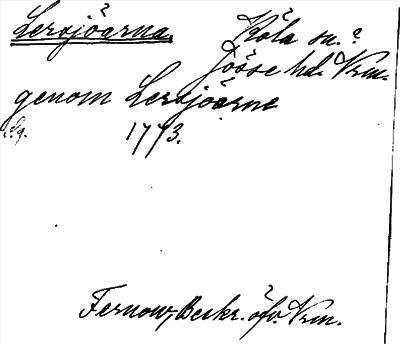 Lersjöarna. Köla sn.?
Jösse hd. Vrm.
genom Lersjöarne
1773.
Fernow, Beskr. öfv. Vrm.